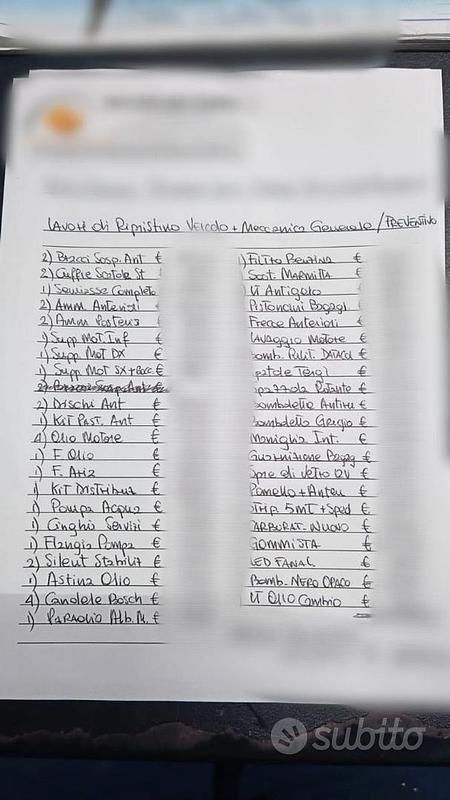 Lavori di Ripristino Veicolo + Meccanica Generale / PREVENTIVO
2) Bracci Sosp. Ant €
2) Cuffie Scatole St €
1) Semiasse Completo
2) Amm Anteriori €
2) Amm Posteriori €
1) Supp Mot Inf €
1) Supp Mot DX €
1) Supp Mot SX + €
2) Bracci Sosp Ant €
2) Dischi Ant €
1) Kit Past. Ant €
4) Olio Motore €
1) F. Olio €
1) F. Aria €
1) Kit Distribuz €
1) Pompa Acqua €
1) Cinghia Servizi €
1) Flangia Pompa €
2) Silent Stabilit €
1) Astina Olio €
4) Candele Bosch €
1) Paraolio Alb. M. €
1) Filtro Benzina €
Scat. Marmitta €
Lt Antigelo €
Pistoncini Bagagl €
Frecce Anteriori €
Lavaggio Motore €
Bomb. Pulit. €
Spatole Tergi €
€
Bomboletta €
Bomboletta €
Maniglia Int. €
Guarnizione Bagag €
Spie di Vetro 12V €
Pomello + Anten €
5MT + Sped €
Carburat. Nuovo €
Gommista €
Led Fanal €
Bomb. Nero Opaco €
Lt Olio Cambio €
subito